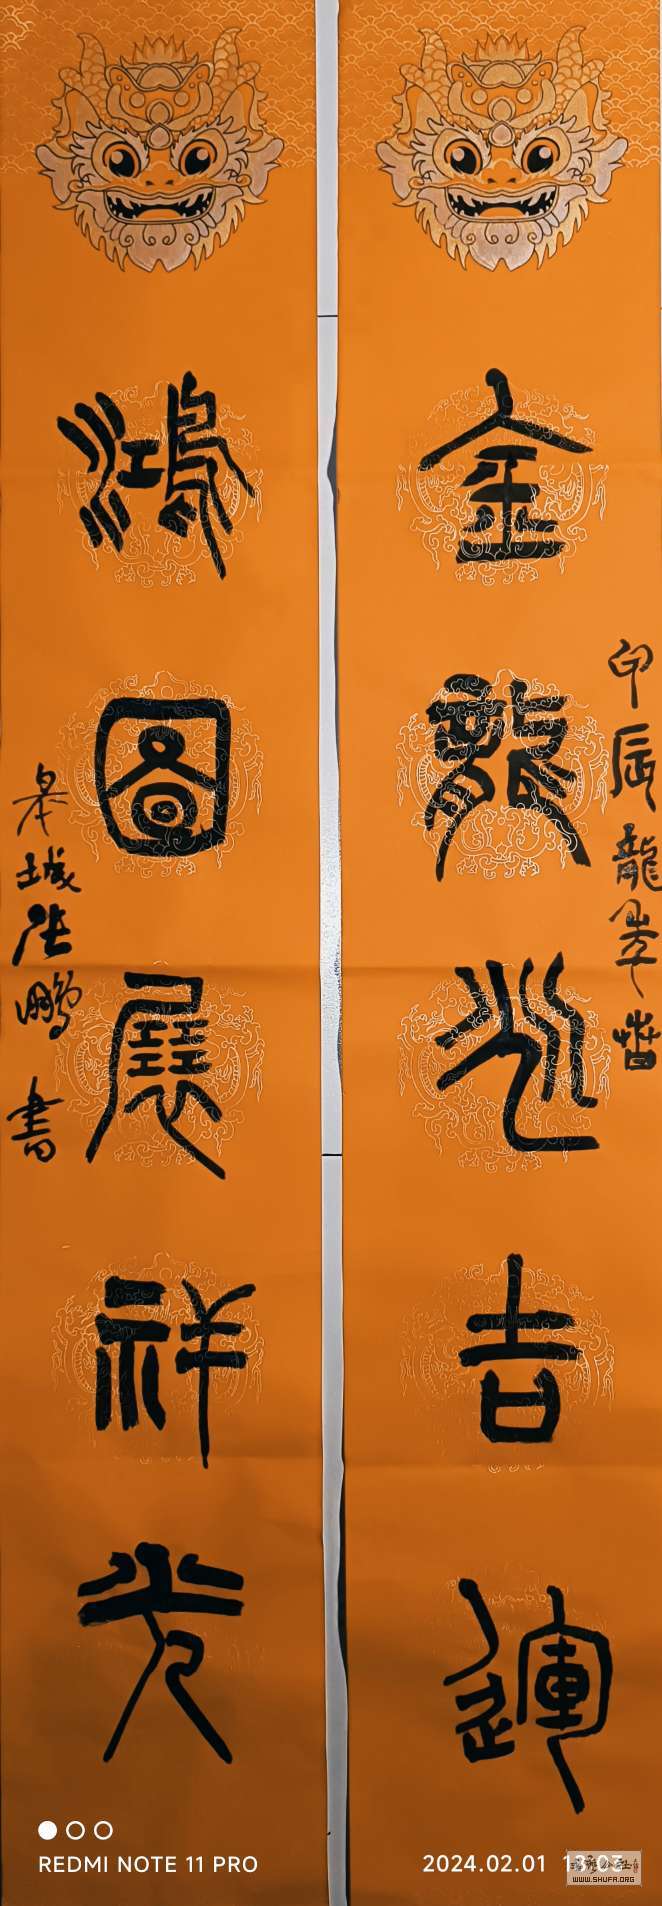 金龍兆吉運
甲辰龍年春
鴻圖展祥光
皋城张鵬書
REDMI NOTE 11 PRO
2024.02.01 13:03
WWW.SHUFA.ORG